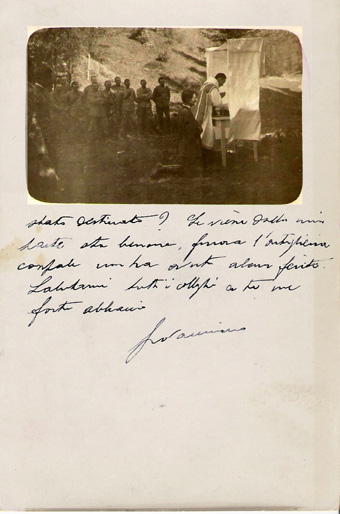 stato destinato? Se viene dalle mie
parte sta benone, finora l'artiglieria
non ha avuto alcun ferito.
Salutami tutti i colleghi a te un
forte abbraccio